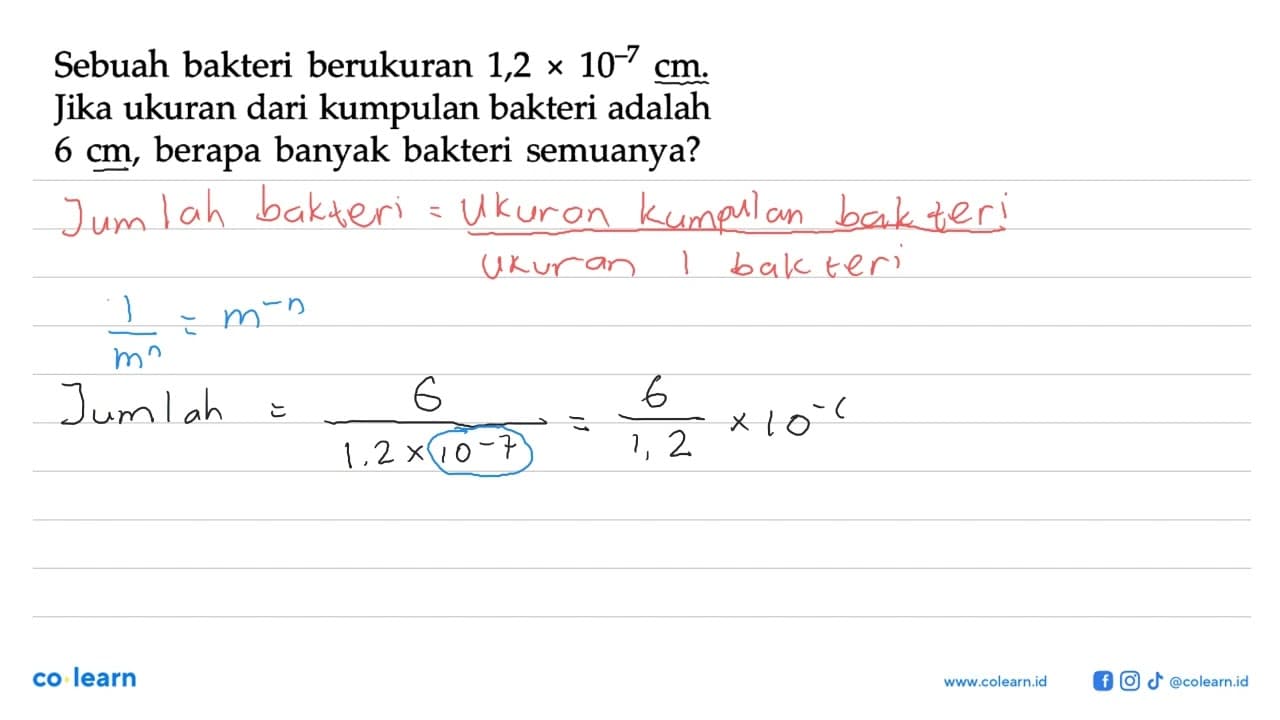 Sebuah bakteri berukuran 1,2 × 10⁻⁷ cm.
Jika ukuran dari kumpulan bakteri adalah
6 cm, berapa banyak bakteri semuanya?
Jumlah bakteri = ukuran kumpulan bakteri
ukuran 1 bakteri
1/mⁿ = m⁻ⁿ
Jumlah = 6/(1.2 × 10⁻⁷) = 6/1,2 × 10⁻⁽
co learn
www.colearn.id
@colearn.id